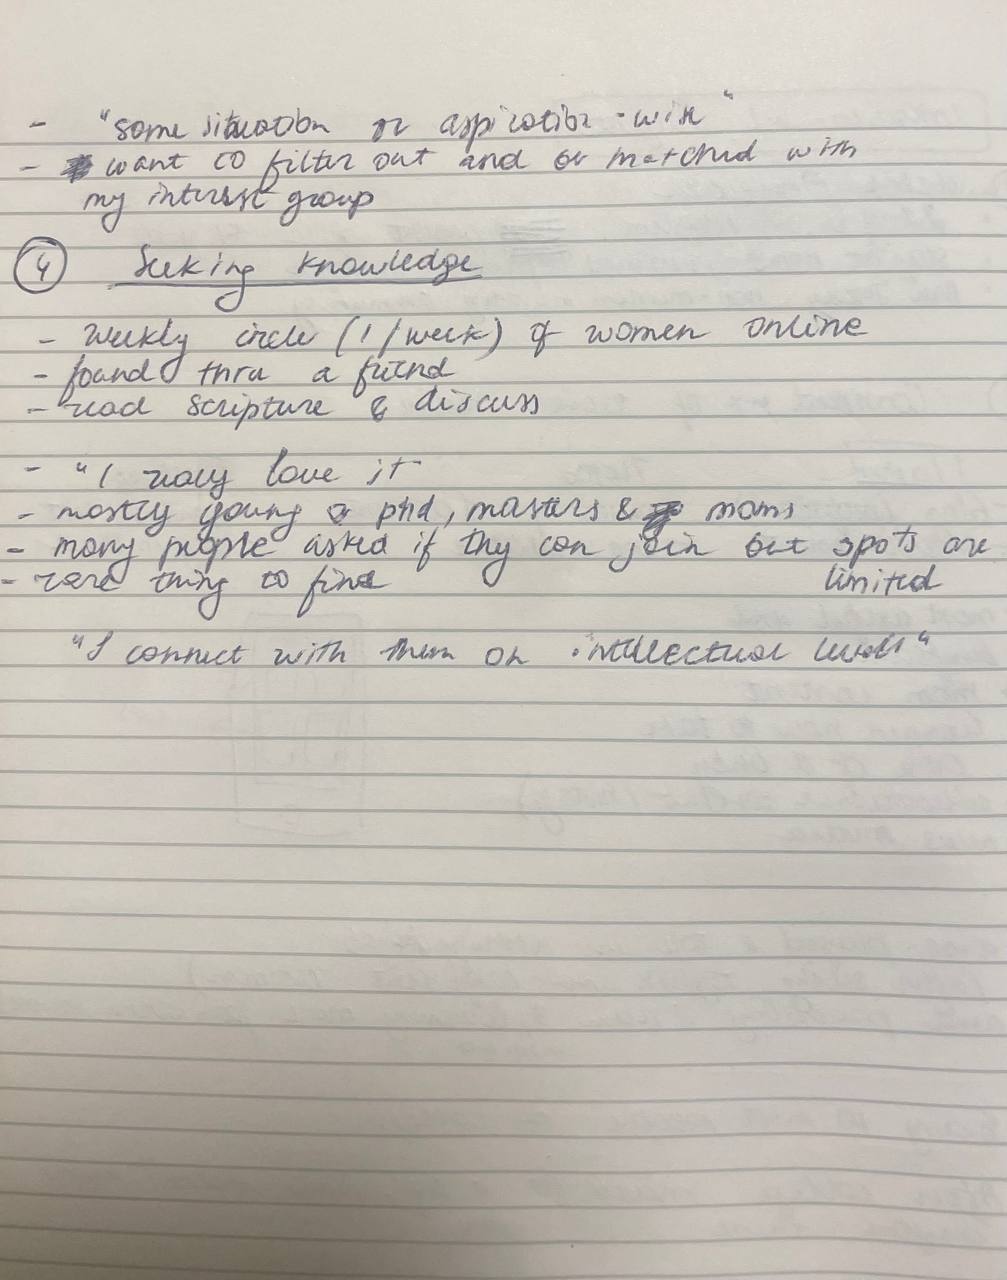 - "some situation or aspiration-wise"
- want to filter out and be matched with
my interest group
④ Seeking knowledge
- weekly circle (1/week) of women online
- found thru a friend
- read scripture & discuss
- "I really love it
- mostly young phd, masters & moms
- many people asked if they can join but spots are
limited
- rare thing to find
"I connect with them on intellectual level"